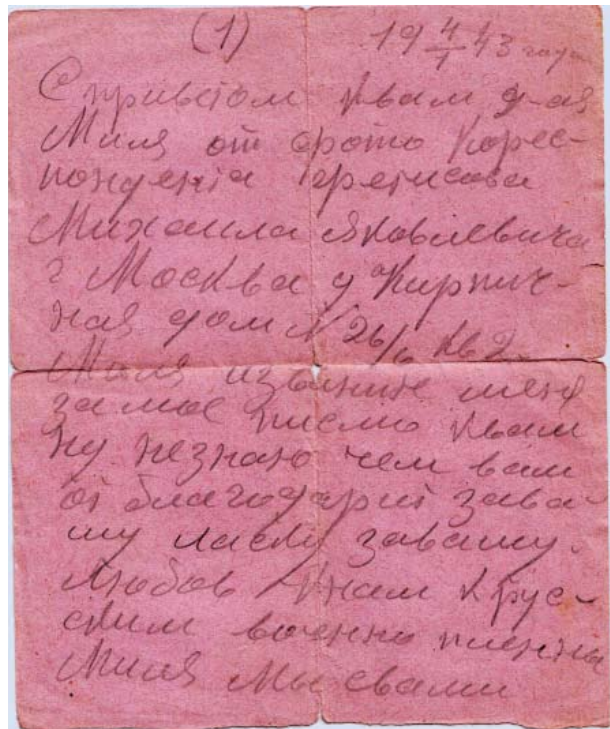 (1) 19 4/1 43 года
С приветомквам д-ая
Миля от фото Корес-
пондента
Михаила Яковлевича
г Москва у Кирпич-
ная дом N 26/6 кв 2.
Миля извините меня
замое писмо квам
ну незнаю чем вам
от благодарит зава-
шу ласку завашу.
любов кнам крус-
ским военно пленны
Миля Мы свами